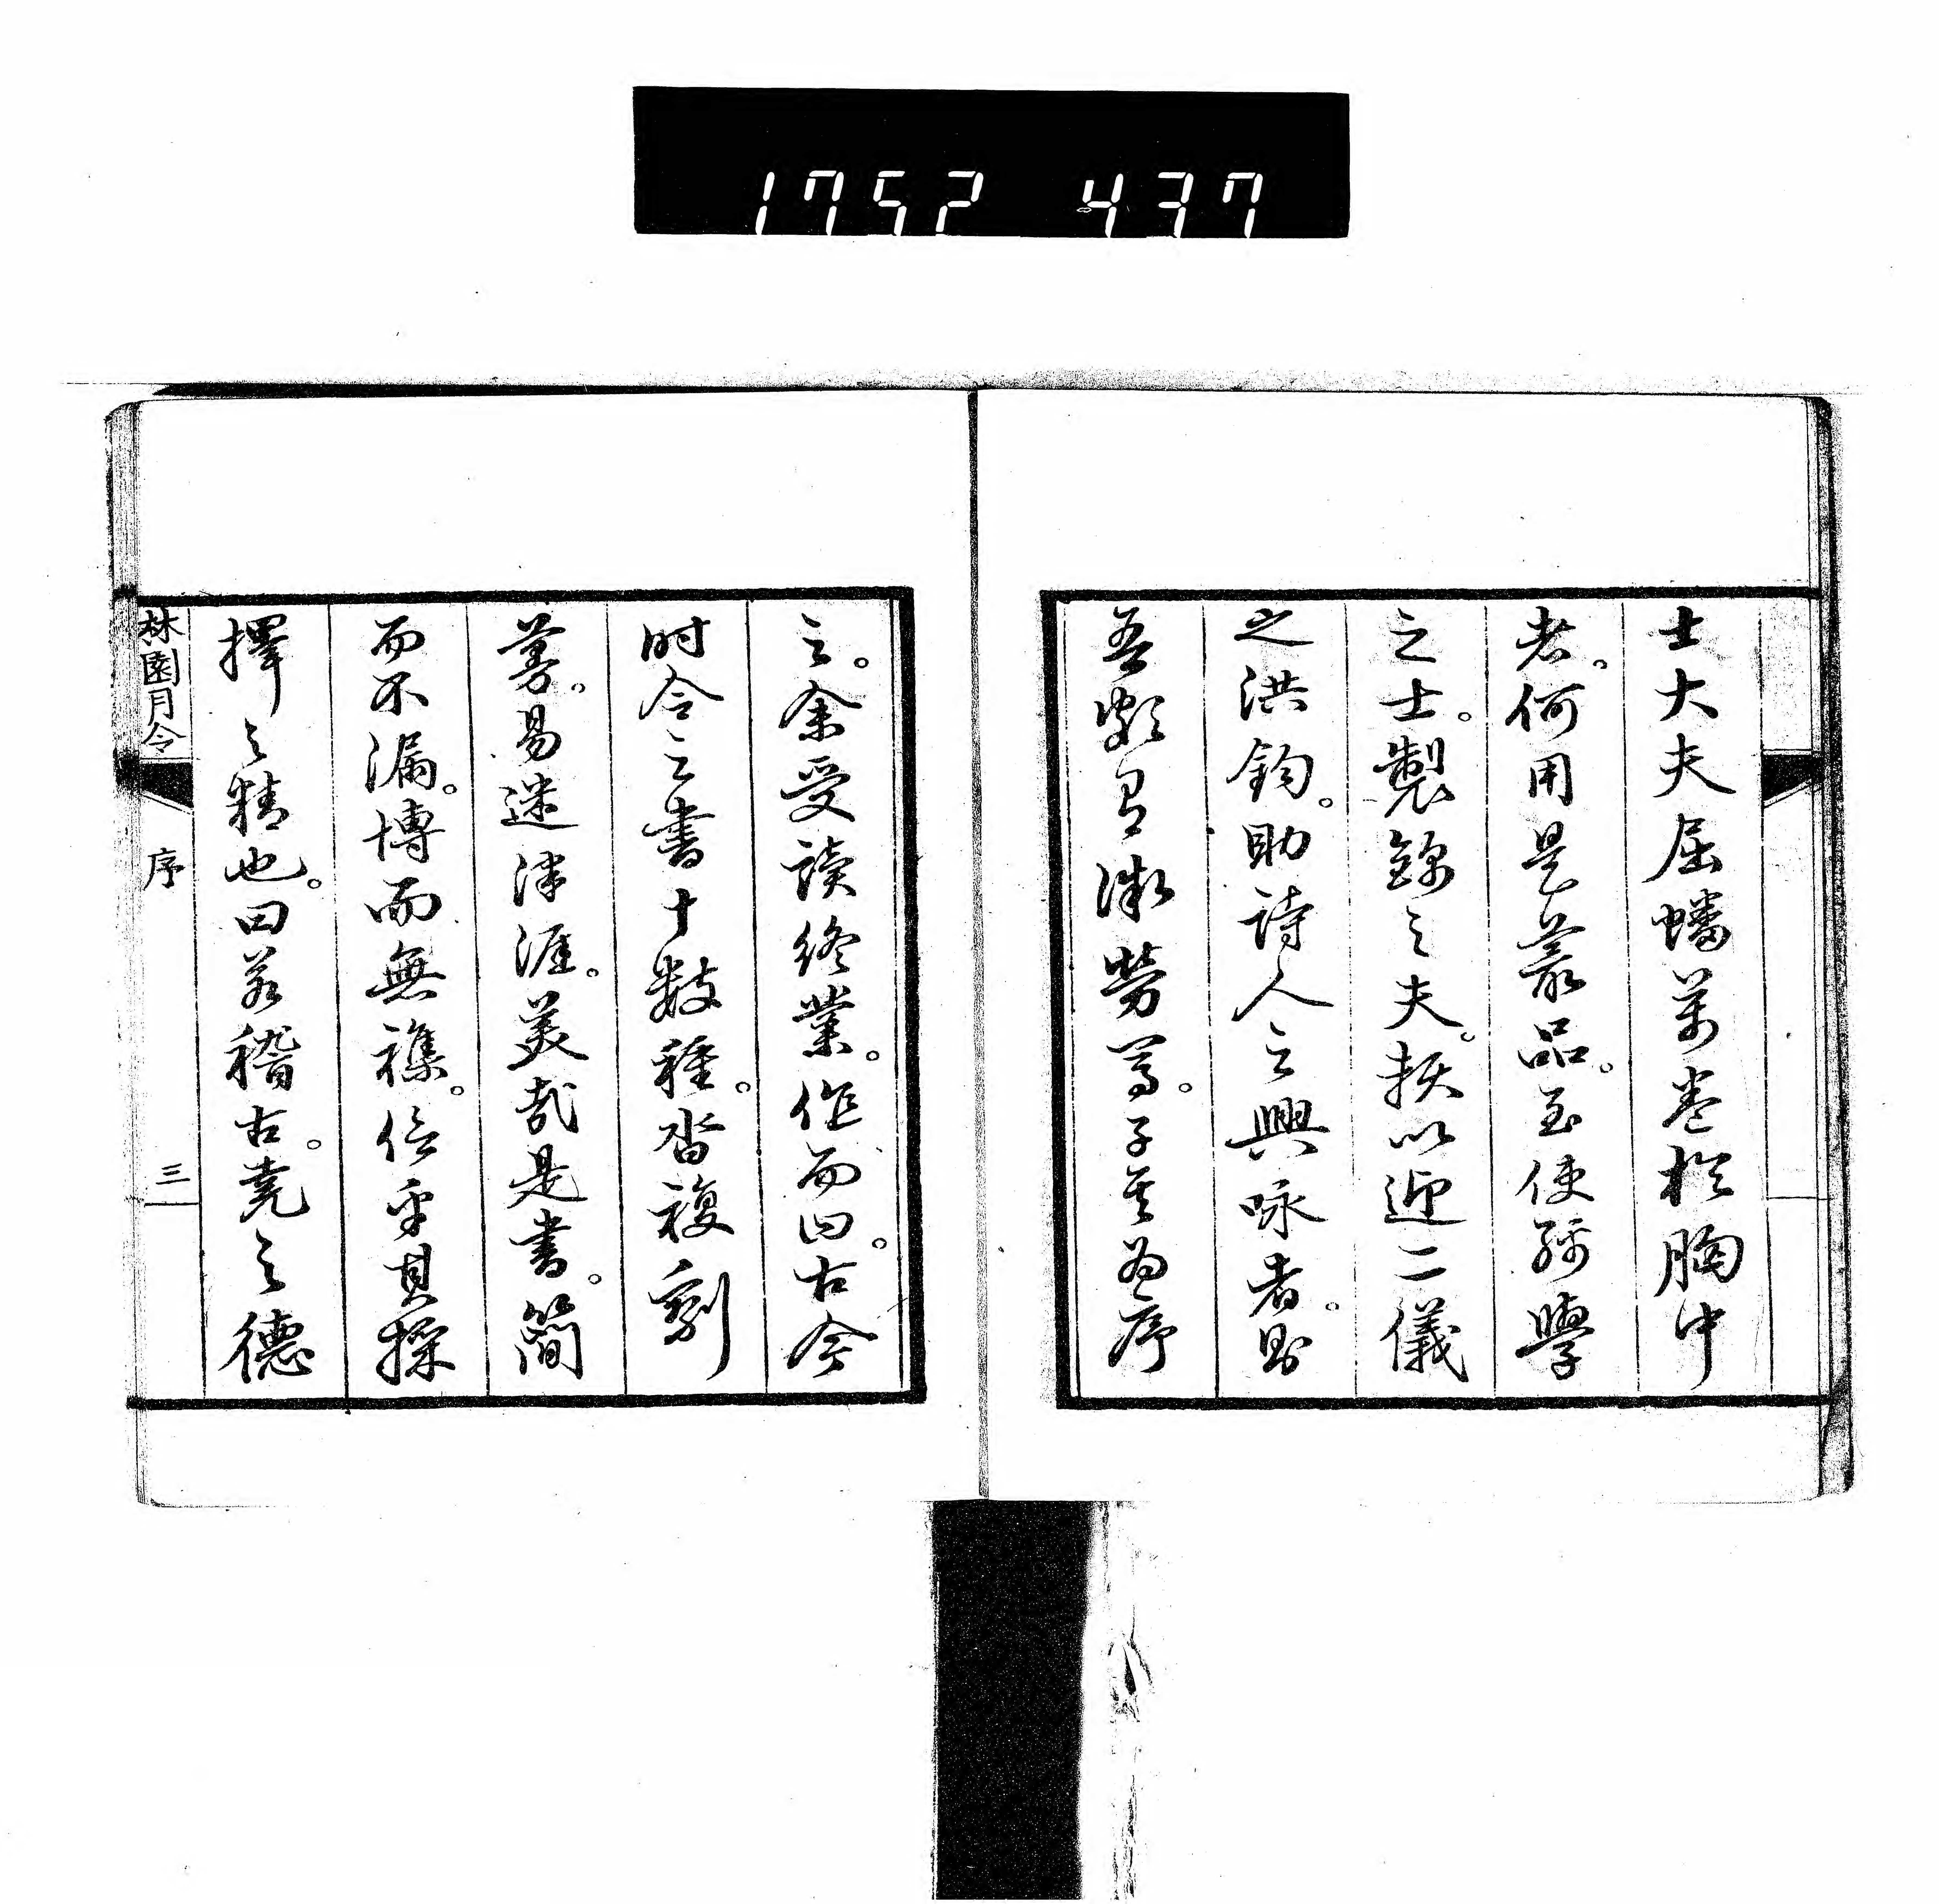 1752 437
士大夫屈蟠萬卷於胸中
者。何用是叢品。至使彌學
之士。製錦之夫。挾以迎二儀
之洪鈞。助詩人之興咏者。則
吾微勞
為序
之。余受讀終業。作而曰。古今
時令之書十數種。沓複剞
易迷津涯。美哉是書。簡
而不漏。博而無襍。信乎其採
擇之精也。曰若稽古。堯之德
林園月令
序
三